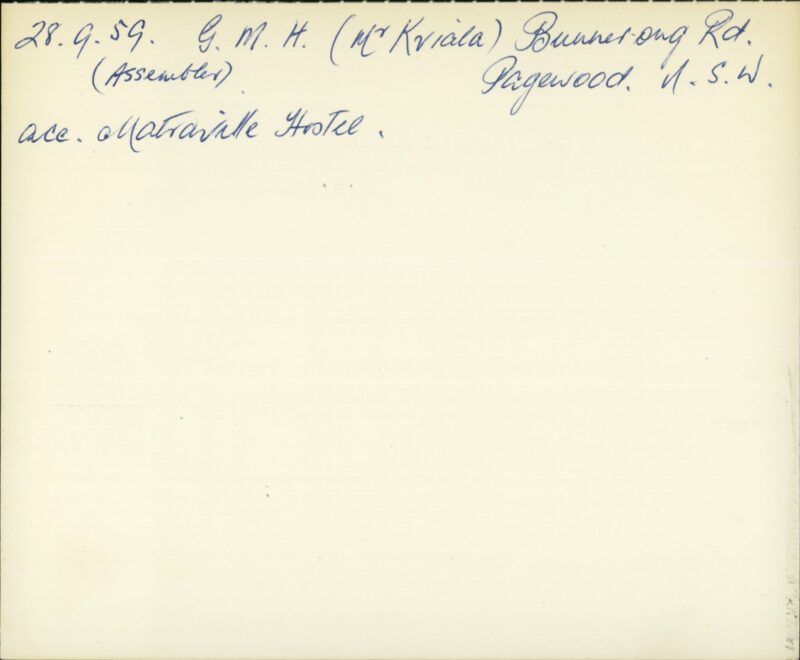 28.9.59. G. M. H. (Mr Kviala) Bunnerong Rd.
(Assembler) Pagewood. N.S.W.
acc. Matraville Hostel.